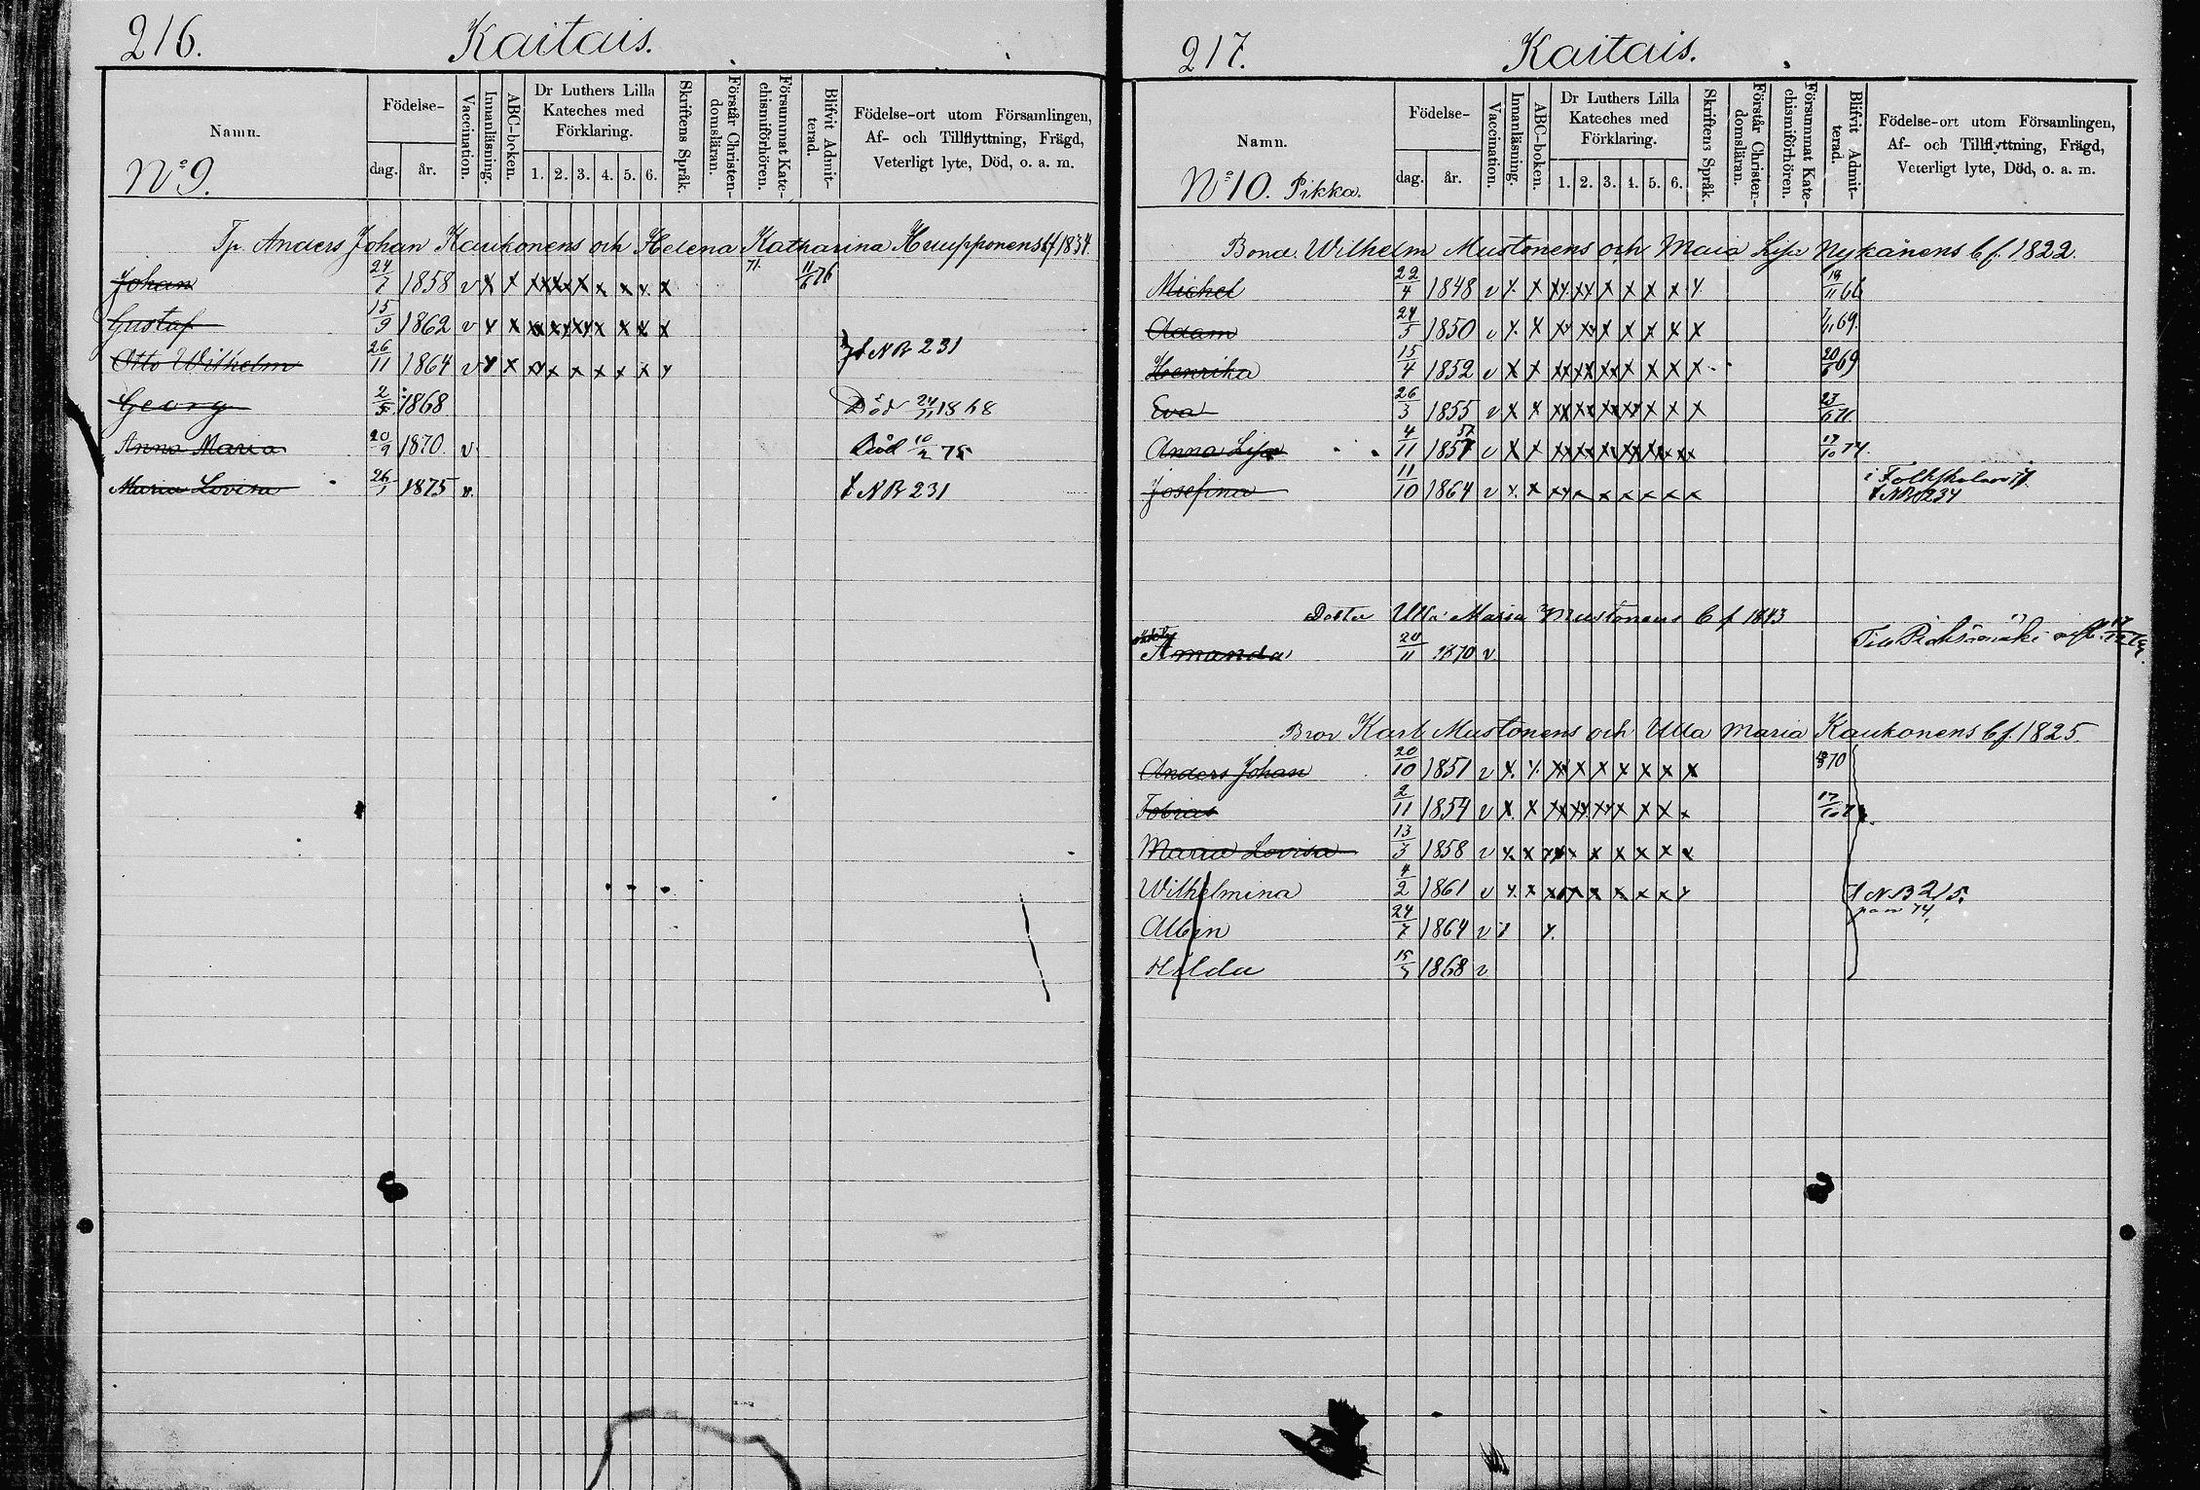 216. Kaitais.
Namn.
Födelse-
dag. år.
Vaccination.
Innanläsning.
ABC-boken.
Dr Luthers Lilla
Kateches med
Förklaring.
1. 2. 3. 4. 5. 6.
Skriftens Språk.
Förstår Christen-
domsläran.
Försummat Kate-
chismiförhören.
Blifvit Admit-
terad.
Födelse-ort utom Församlingen,
Af- och Tillflyttning, Frägd,
Veterligt lyte, Död, o. a. m.
No 9.
Tp. Anders Johan Kaukonens och Helena Katharina Heupponens bf 1834
Johan 24/7 1858 v x x xx xx x x x x x 71. 11/6 76
Gustaf 15/9 1862 v x x xx xx xx x x x x
Otto Wilhelm 26/11 1864 v x x xx x x x x x x f NB 231
Georg 2/5 1868 Död 24/11 1868
Anna Maria 20/9 1870 v Död 75
Maria Lovisa 26/1 1875 v. f NB 231
217. Kaitais.
Namn.
Födelse-
dag. år.
Vaccination.
Innanläsning.
ABC-boken.
Dr Luthers Lilla
Kateches med
Förklaring.
1. 2. 3. 4. 5. 6.
Skriftens Språk.
Förstår Christen-
domsläran.
Försummat Kate-
chismiförhören.
Blifvit Admit-
terad.
Födelse-ort utom Församlingen,
Af- och Tillflyttning, Frägd,
Veterligt lyte, Död, o. a. m.
No 10. Pikka.
Bonde. Wilhelm Mustonens och Maia Lisa Nykänens bf. 1822.
Michel 22/4 1848 v x x xx xx x x x x x 66
Adam 24/5 1850 v x x xx xx x x x x x 69.
Henrika 15/4 1852 v x x xx xx xx x x x x 69
Eva 26/3 1855 v x x xx xx xx xx x x x 23/6 71.
Anna Lisa 4/11 1857 57 v x x xx xx xx xx xx xx x 17/10 74.
Josefina 11/10 1864 v x x xx x x x x x x i Folkskolan
f NB 234
Dotter Ulla Maria Mustonens bf 1843
Amanda 20/11 1870 v Till Pieksämäki
Bror Karl Mustonens och Ulla Maria Kaukonens bf. 1825.
Anders Johan 20/10 1851 v x x xx x x x x x x 70
Tobias 2/11 1854 v x x xx xx xx x x x x 17/10
Maria Lovisa 13/3 1858 v x x xx x x x x x x
Wilhelmina 4/2 1861 v x x xx x x x x x x f NB 215.
74.
Albin 24/7 1864 v x x
Hilda 15/5 1868 v